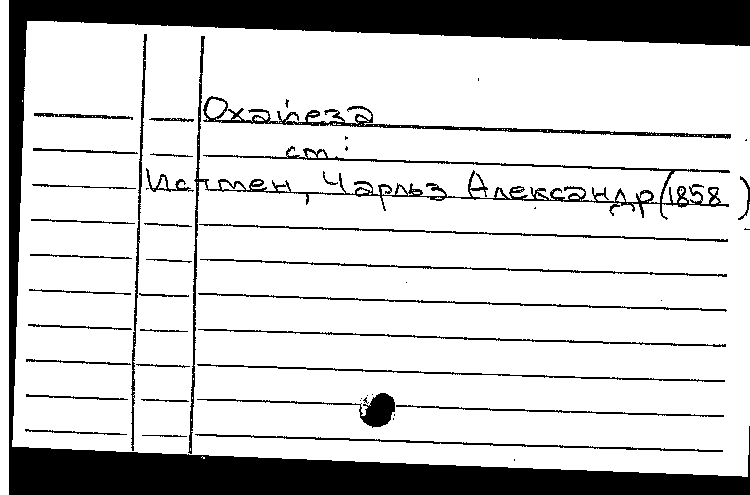 Охайеза
ст:
Истмен, Чарльз Александр (1858 )